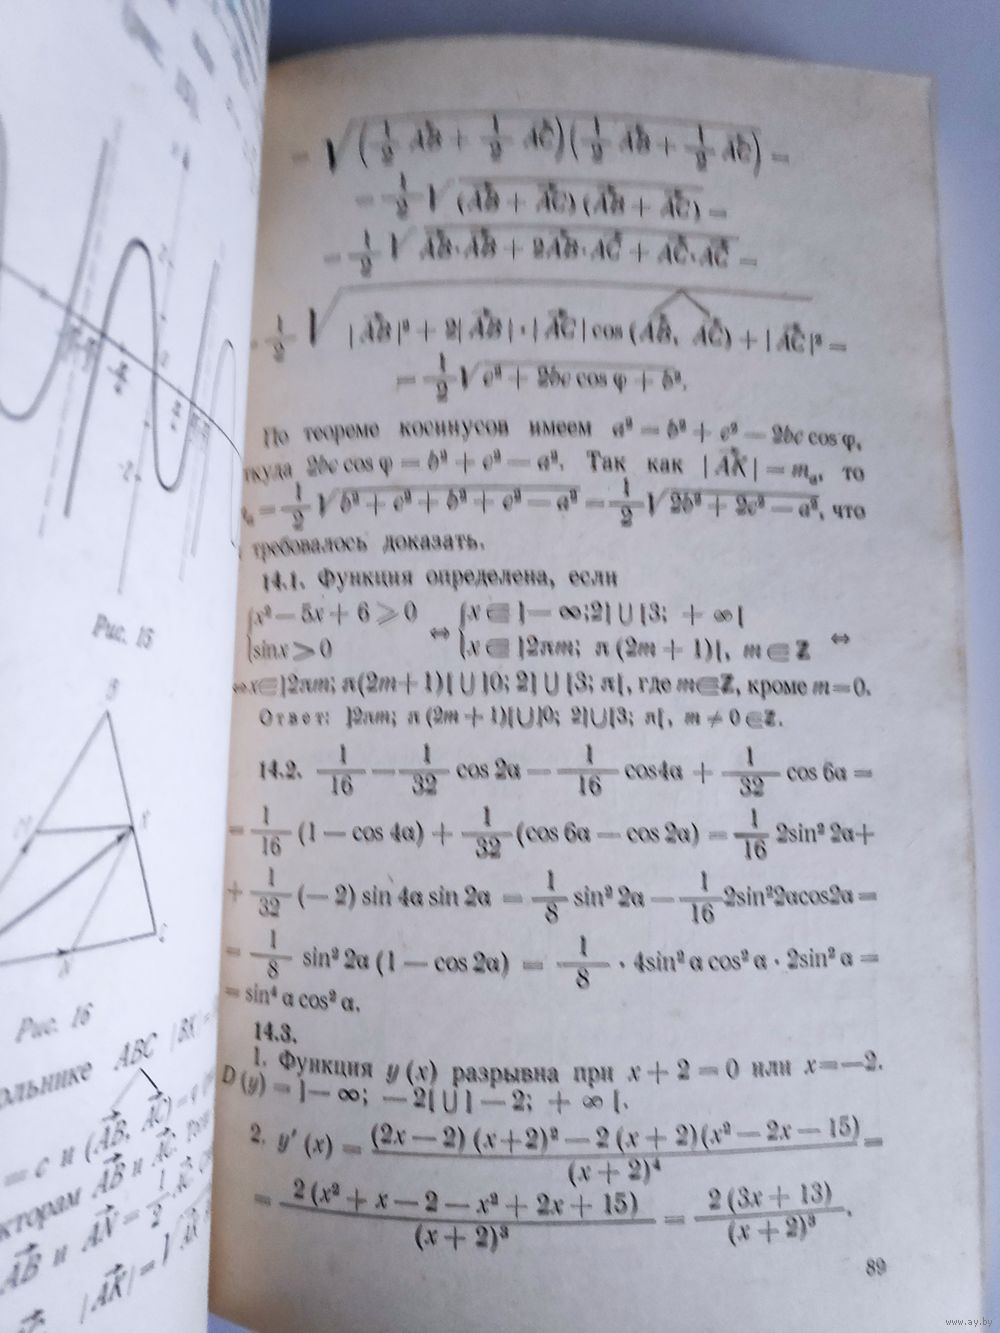 Рис. 15
B
K
C
N
Рис. 16
ольнике ABC |BK| =
= c и (AB⃗, AC⃗) = φ
кторам AB⃗ и AC⃗.
AB⃗ и AN⃗ = 1/2 AC⃗.
|AK⃗| = √
= √((1/2 AB⃗ + 1/2 AC⃗)(1/2 AB⃗ + 1/2 AC⃗)) =
= 1/2 √((AB⃗ + AC⃗)(AB⃗ + AC⃗)) =
= 1/2 √(AB⃗·AB⃗ + 2AB⃗·AC⃗ + AC⃗·AC⃗) =
1/2 √(|AB⃗|² + 2|AB⃗|·|AC⃗| cos (AB⃗, AC⃗) + |AC⃗|²) =
= 1/2 √(c² + 2bc cos φ + b²).
По теореме косинусов имеем a² = b² + c² — 2bc cos φ,
ткуда 2bc cos φ = b² + c² — a². Так как |AK⃗| = mₐ, то
= 1/2 √(b² + c² + b² + c² — a²) = 1/2 √(2b² + 2c² — a²), что
требовалось доказать.
14.1. Функция определена, если
{x² — 5x + 6 ⩾ 0 ⇔ {x ∈ ]— ∞; 2] ∪ [3; + ∞[
{sin x > 0 {x ∈ ]2πm; π (2m + 1)[, m ∈ Z ⇔
⇔ x ∈ ]2πm; π(2m + 1)[ ∪ ]0; 2] ∪ [3; π[, где m ∈ Z, кроме m = 0.
Ответ: ]2πm; π (2m + 1)[∪]0; 2]∪[3; π[, m ≠ 0 ∈ Z.
14.2. 1/16 — 1/32 cos 2α — 1/16 cos4α + 1/32 cos 6α =
= 1/16 (1 — cos 4α) + 1/32 (cos 6α — cos 2α) = 1/16 2sin² 2α +
+ 1/32 (— 2) sin 4α sin 2α = 1/8 sin² 2α — 1/16 2sin²2αcos2α =
= 1/8 sin² 2α (1 — cos 2α) = 1/8 · 4sin² α cos² α · 2sin² α =
= sin⁴ α cos² α.
14.3.
1. Функция y (x) разрывна при x + 2 = 0 или x = —2.
D (y) = ]— ∞; — 2[ ∪ ] — 2; + ∞ [.
2. y′ (x) = ((2x — 2) (x + 2)² — 2 (x + 2)(x² — 2x — 15))/(x + 2)⁴ =
= (2 (x² + x — 2 — x² + 2x + 15))/(x + 2)³ = (2 (3x + 13))/(x + 2)³.
89
www.ay.by